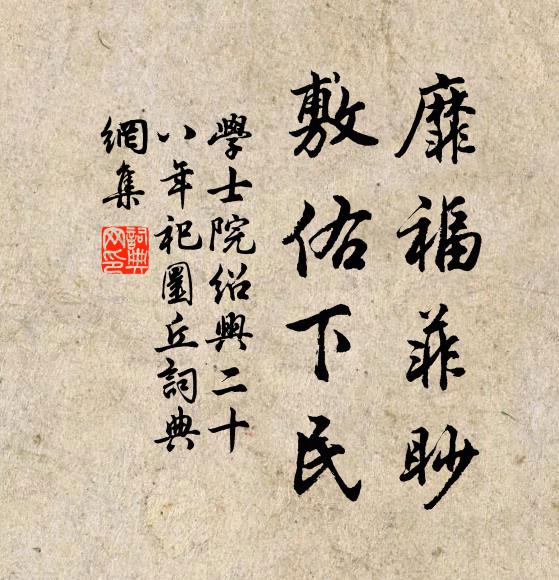 靡福菲眇
敷佑下民
學士院紹興二十
八年祀圜丘詞典
網集
詞典網印